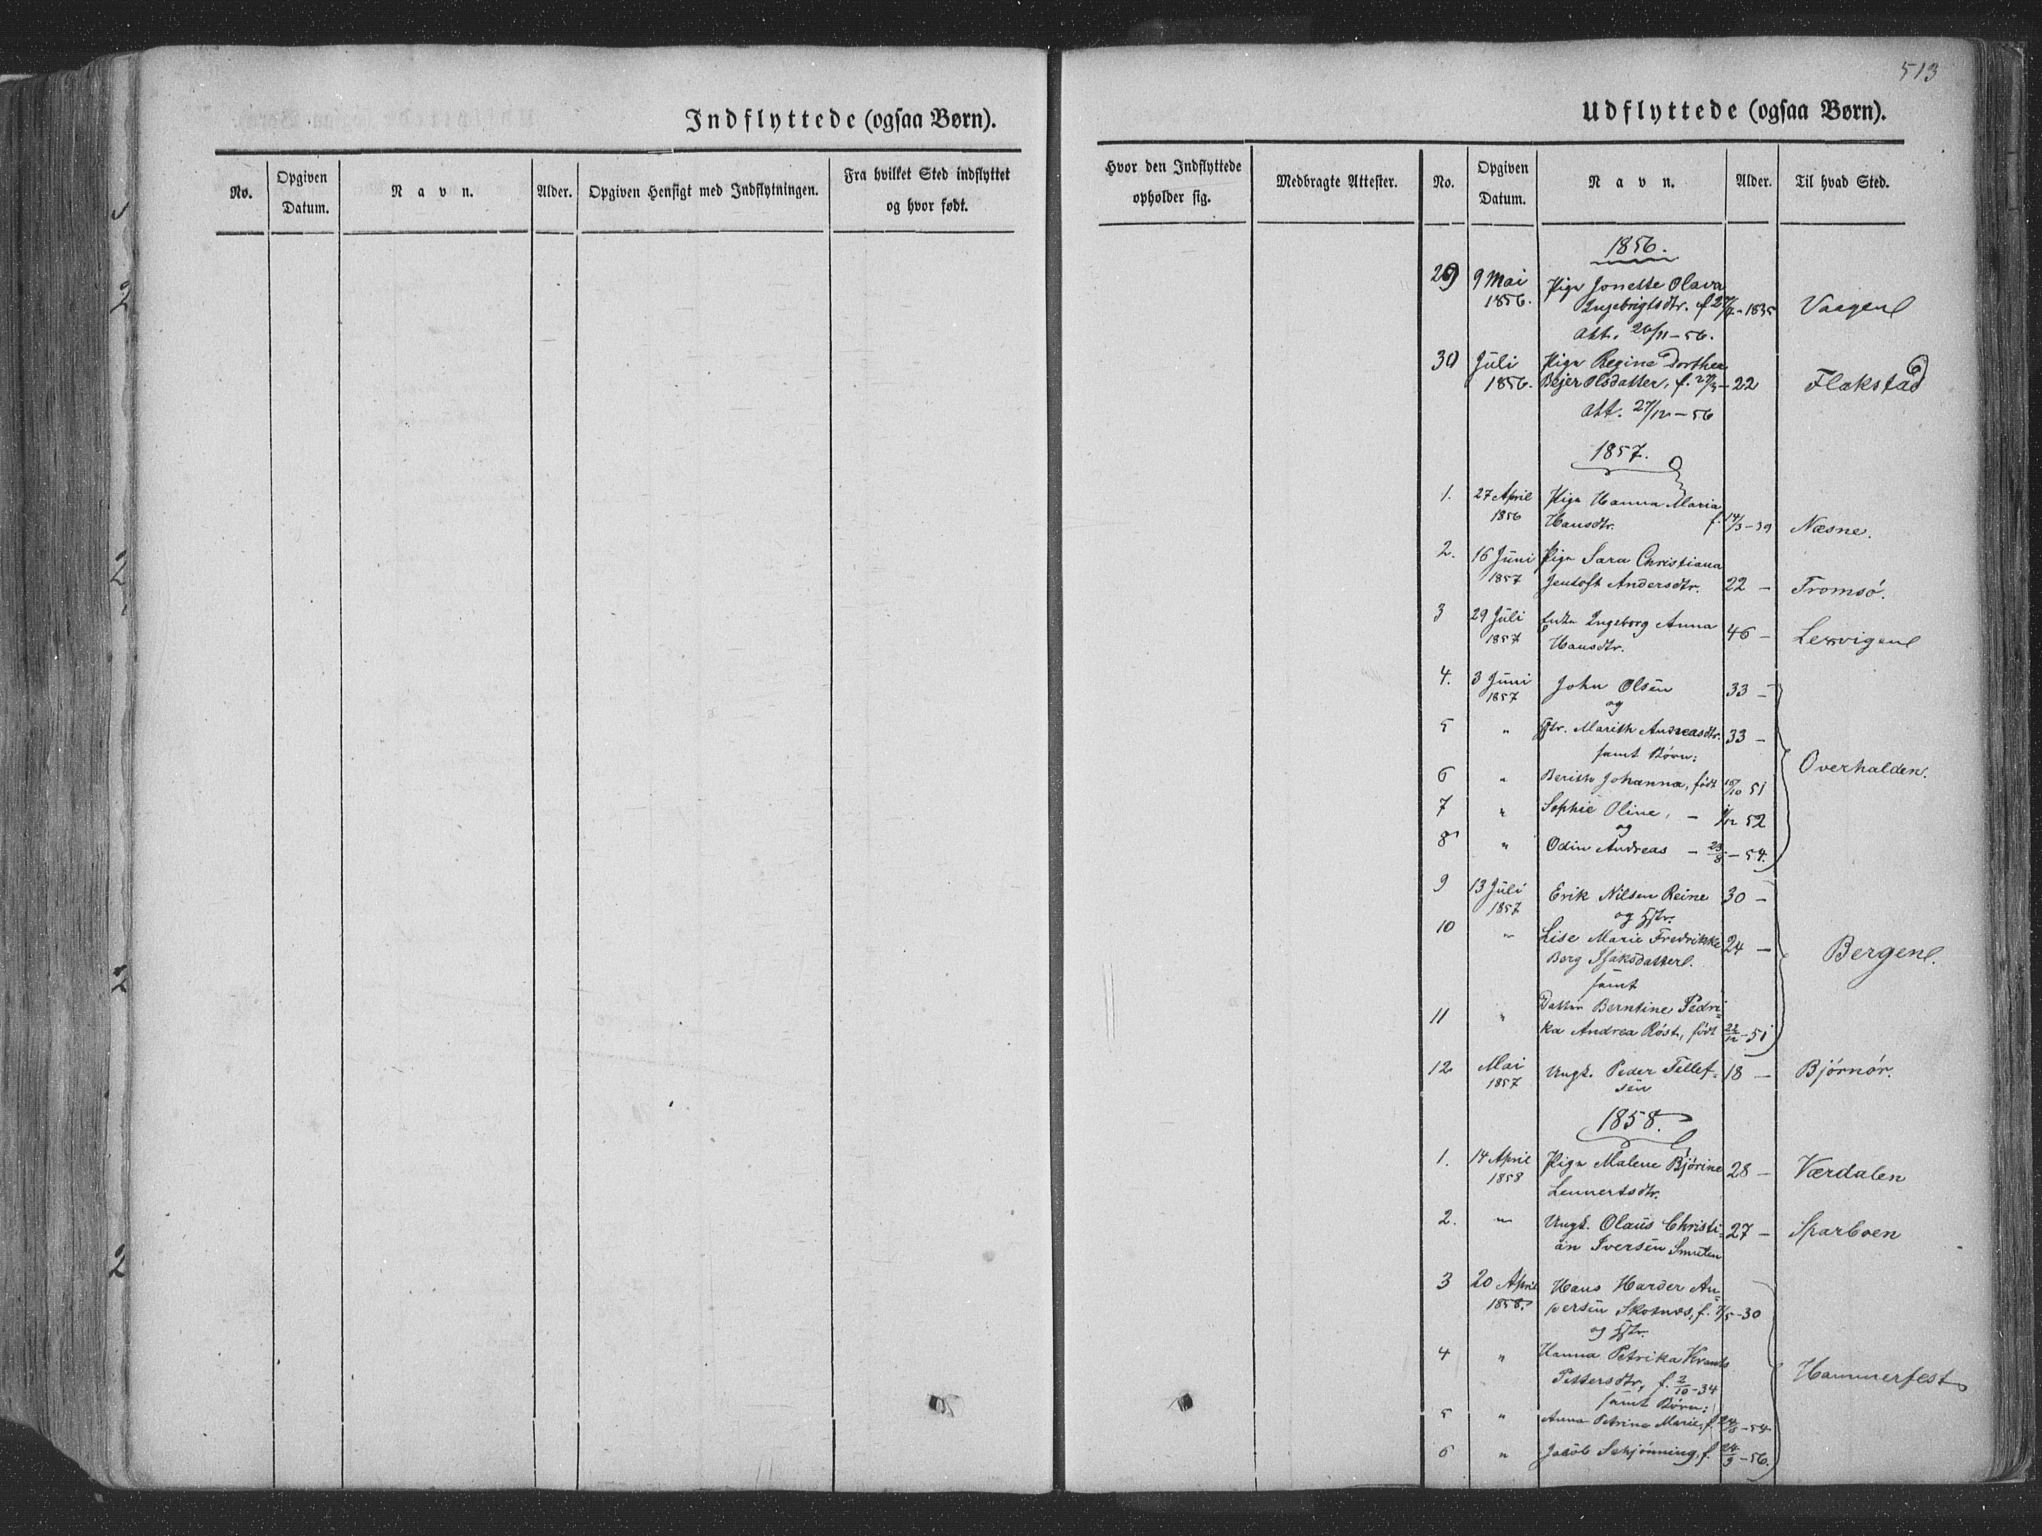 513
Indflyttede (ogsaa Børn).
No.
Opgiven Datum.
Navn.
Alder.
Opgiven Hensigt med Indflytningen.
Fra hvilket Sted indflyttet og hvor født.
Udflyttede (ogsaa Børn).
Hvor den Indflyttede opholder sig.
Medbragte Attester.
No.
Opgiven Datum.
Navn.
Alder.
Til hvad Sted.
1856.
29 9 Mai Pige Jonette Olava
1856. Ingebrigtsdtr. f. 27/4-1835 Vaagen
Att. 26/11-56.
30 Juli Pige Regine Dorthea
1856. Bejer Olsdatter, f. 27/3-22 Flakstad
Att. 27/12-56
1857.
1. 27 April Pige Hanna Maria
1856 Hansdtr. f. 14/3-39 Næsne.
2. 16 Juni Pige Sara Christiana
1857 Jentoft Andersdtr. 22 - Tromsø.
3 29 Juli Enke Ingeborg Anna 46 -
1857 Hansdtr. Lexvigen
4. 3 Juni John Olsen 33 -
1857 og
5 " Hstr. Marith Andreasdtr. 33 -
samt Børn:
Overhalden.
6 " Berith Johanna, født 15/10 51
7 " Sophie Oline, - 1/12 52
og
8 " Odin Andreas - 23/8 - 54.
9 13 Juli Erik Nilsen Reine 30 -
1857 og Hstr.
10 " Lise Marie Fredrikke 24 - Bergen.
Berg Isaksdatter.
samt
11 " Datter Berntine Pedri-
ka Andrea Røst, født 22/12-51
12. Mai Ungk. Peder Tellef- 18 - Bjørnør.
1857 sen
1858.
1. 14 April Pige Malene Bjørine 28 - Værdalen
1858 Lennertsdtr.
2. " Ungk. Olaus Christi- 27 - Sparboen
an Iversen Smuten
3 20 April Hans Harder An-
1858. dersen Skotnes, f. 7/5-30
og Hstr.
4 " Hanna Petrika Krants
Hammerfest
Pettersdtr, f. 2/10-34
samt Børn:
5 " Anna Petrina Marie, f. 24/5-54
6 " Jakob Schjønning, f. 24/9-56.